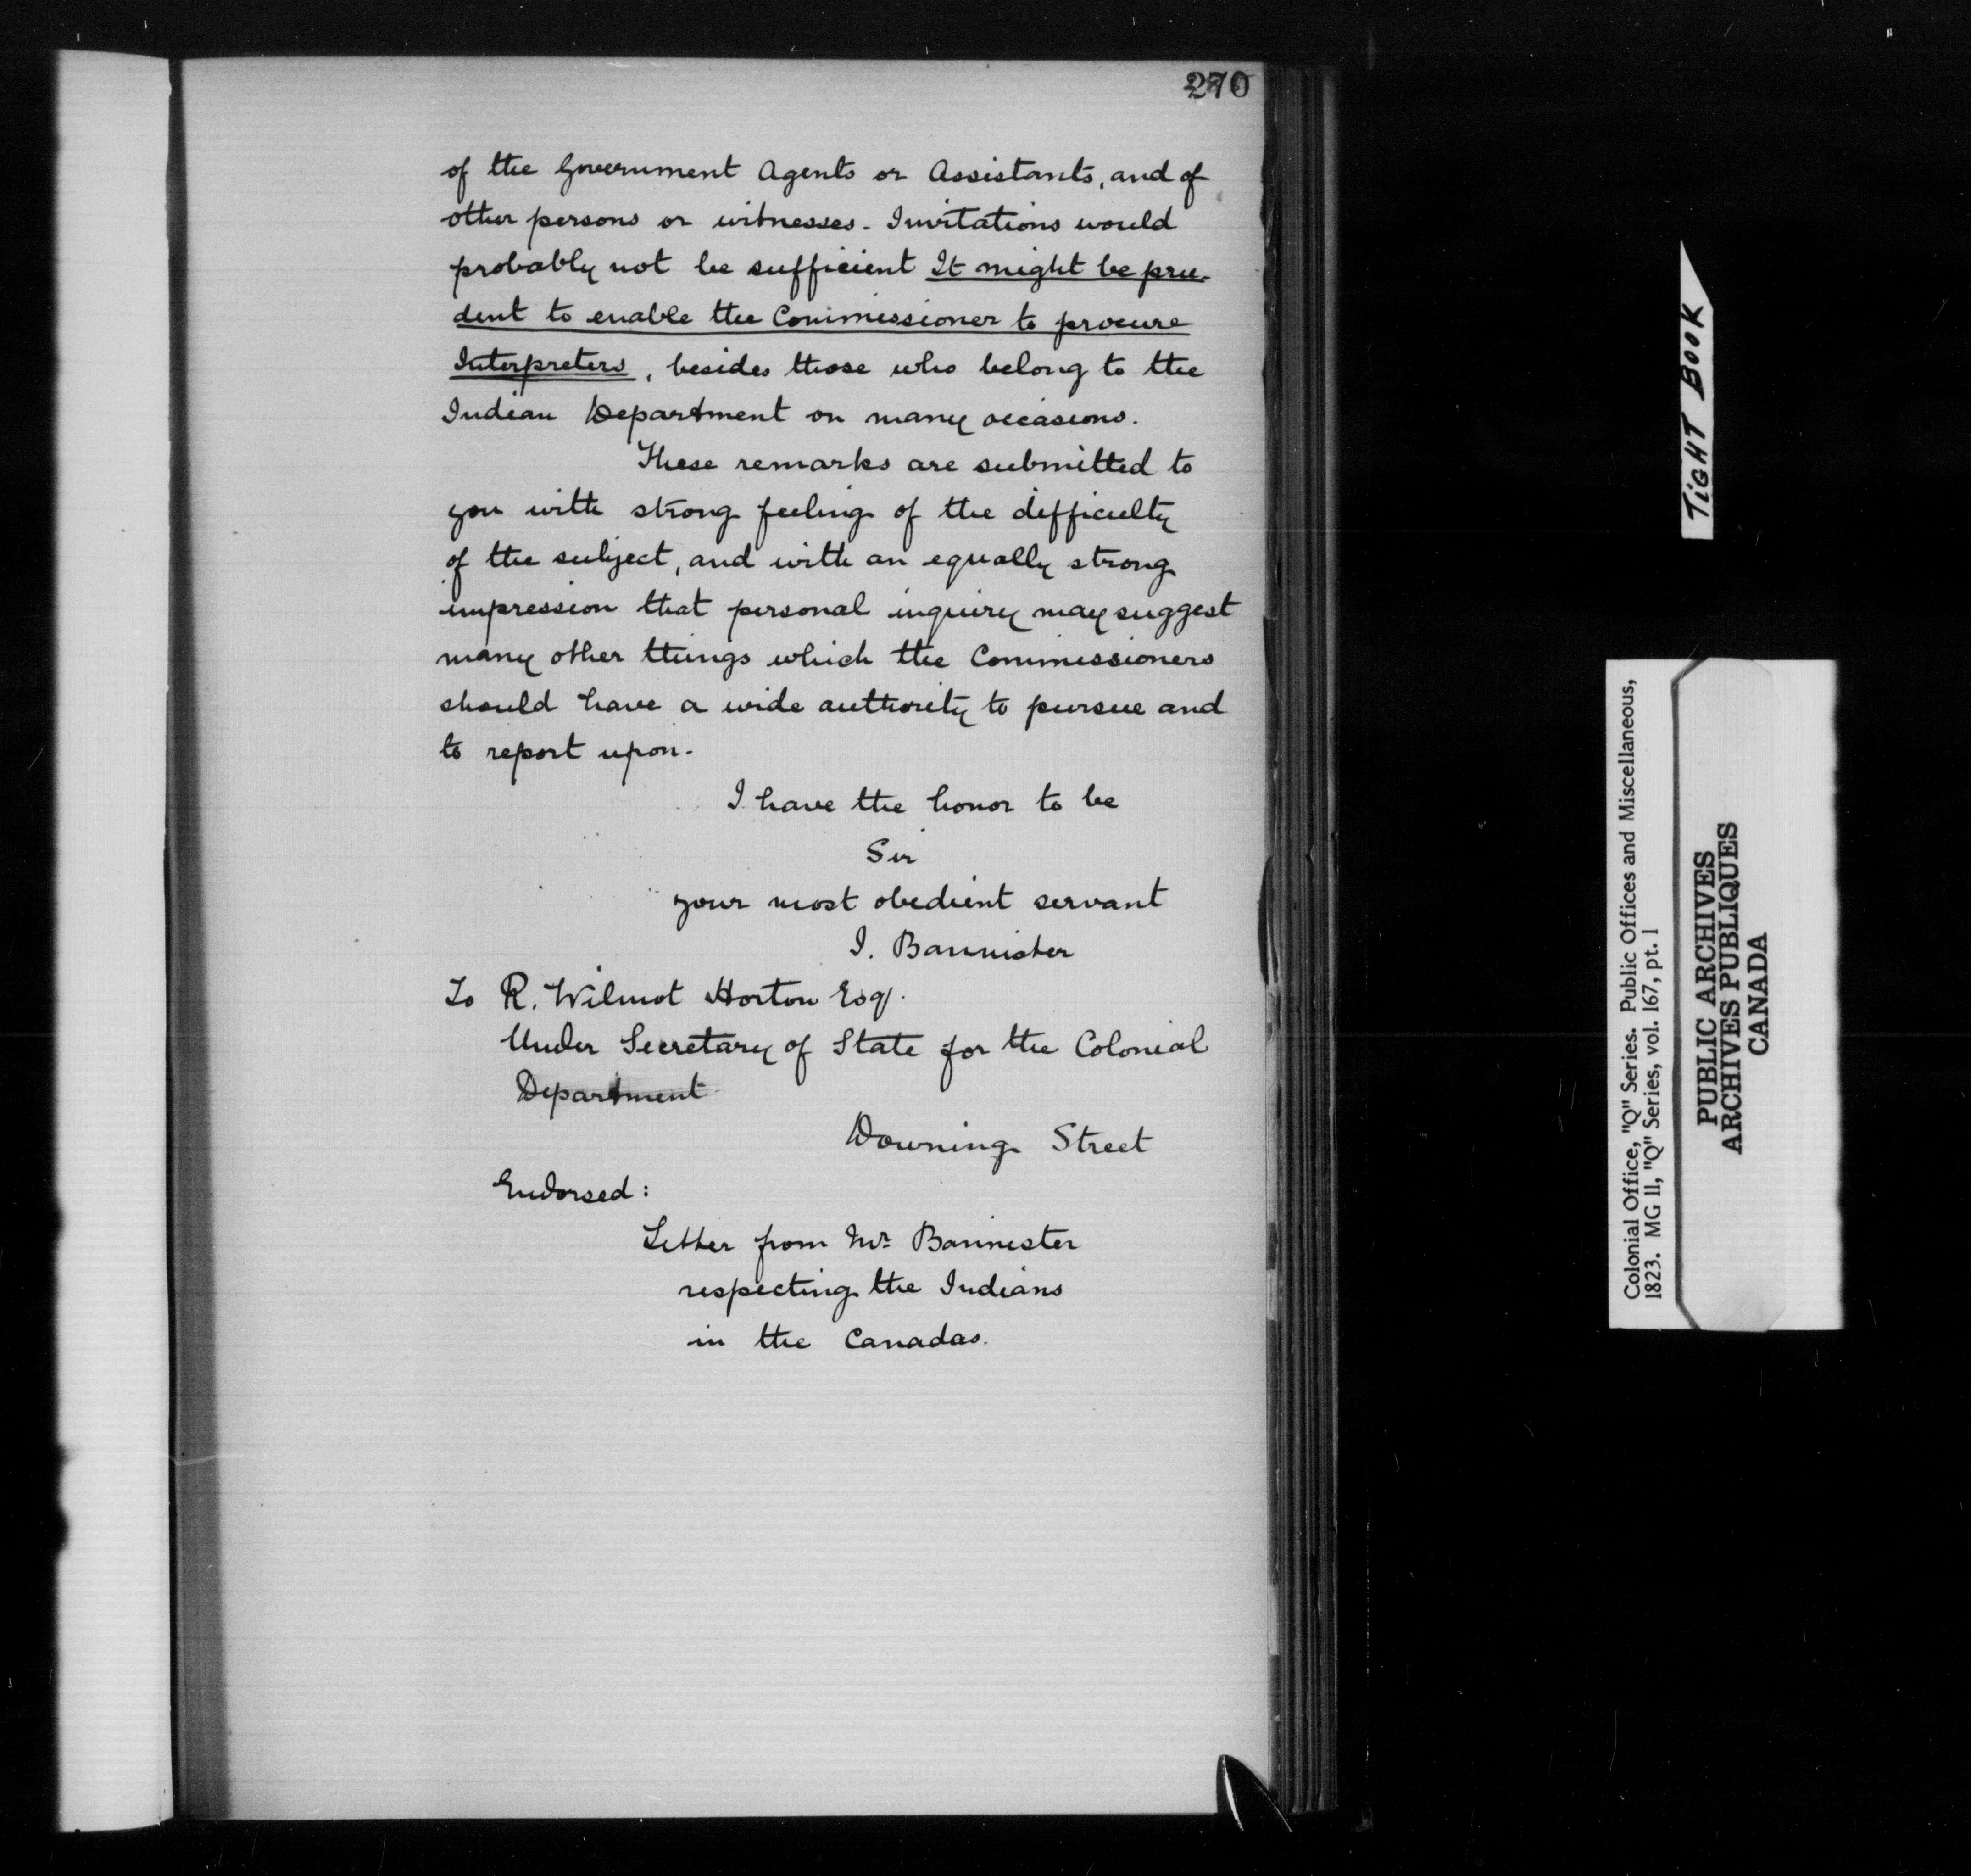 270
of the Government Agents or Assistants, and of
other persons or witnesses. Invitations would
probably not be sufficient It might be pru-
dent to enable the Commissioner to procure
Interpreters, besides those who belong to the
Indian Department on many occasions.
These remarks are submitted to
you with strong feeling of the difficulty
of the subject, and with an equally strong
impression that personal inquiry may suggest
many other things which the Commissioners
should have a wide authority to pursue and
to report upon.
I have the honor to be
Sir
your most obedient servant
I. Bannister
To R. Wilmot Horton Esq.
Under Secretary of State for the Colonial
Department
Downing Street
Endorsed:
Letter from Mr. Bannister
respecting the Indians
in the Canadas.
TIGHT BOOK
Colonial Office, "Q" Series. Public Offices and Miscellaneous,
1823. MG 11, "Q" Series, vol. 167, pt. 1
PUBLIC ARCHIVES
ARCHIVES PUBLIQUES
CANADA